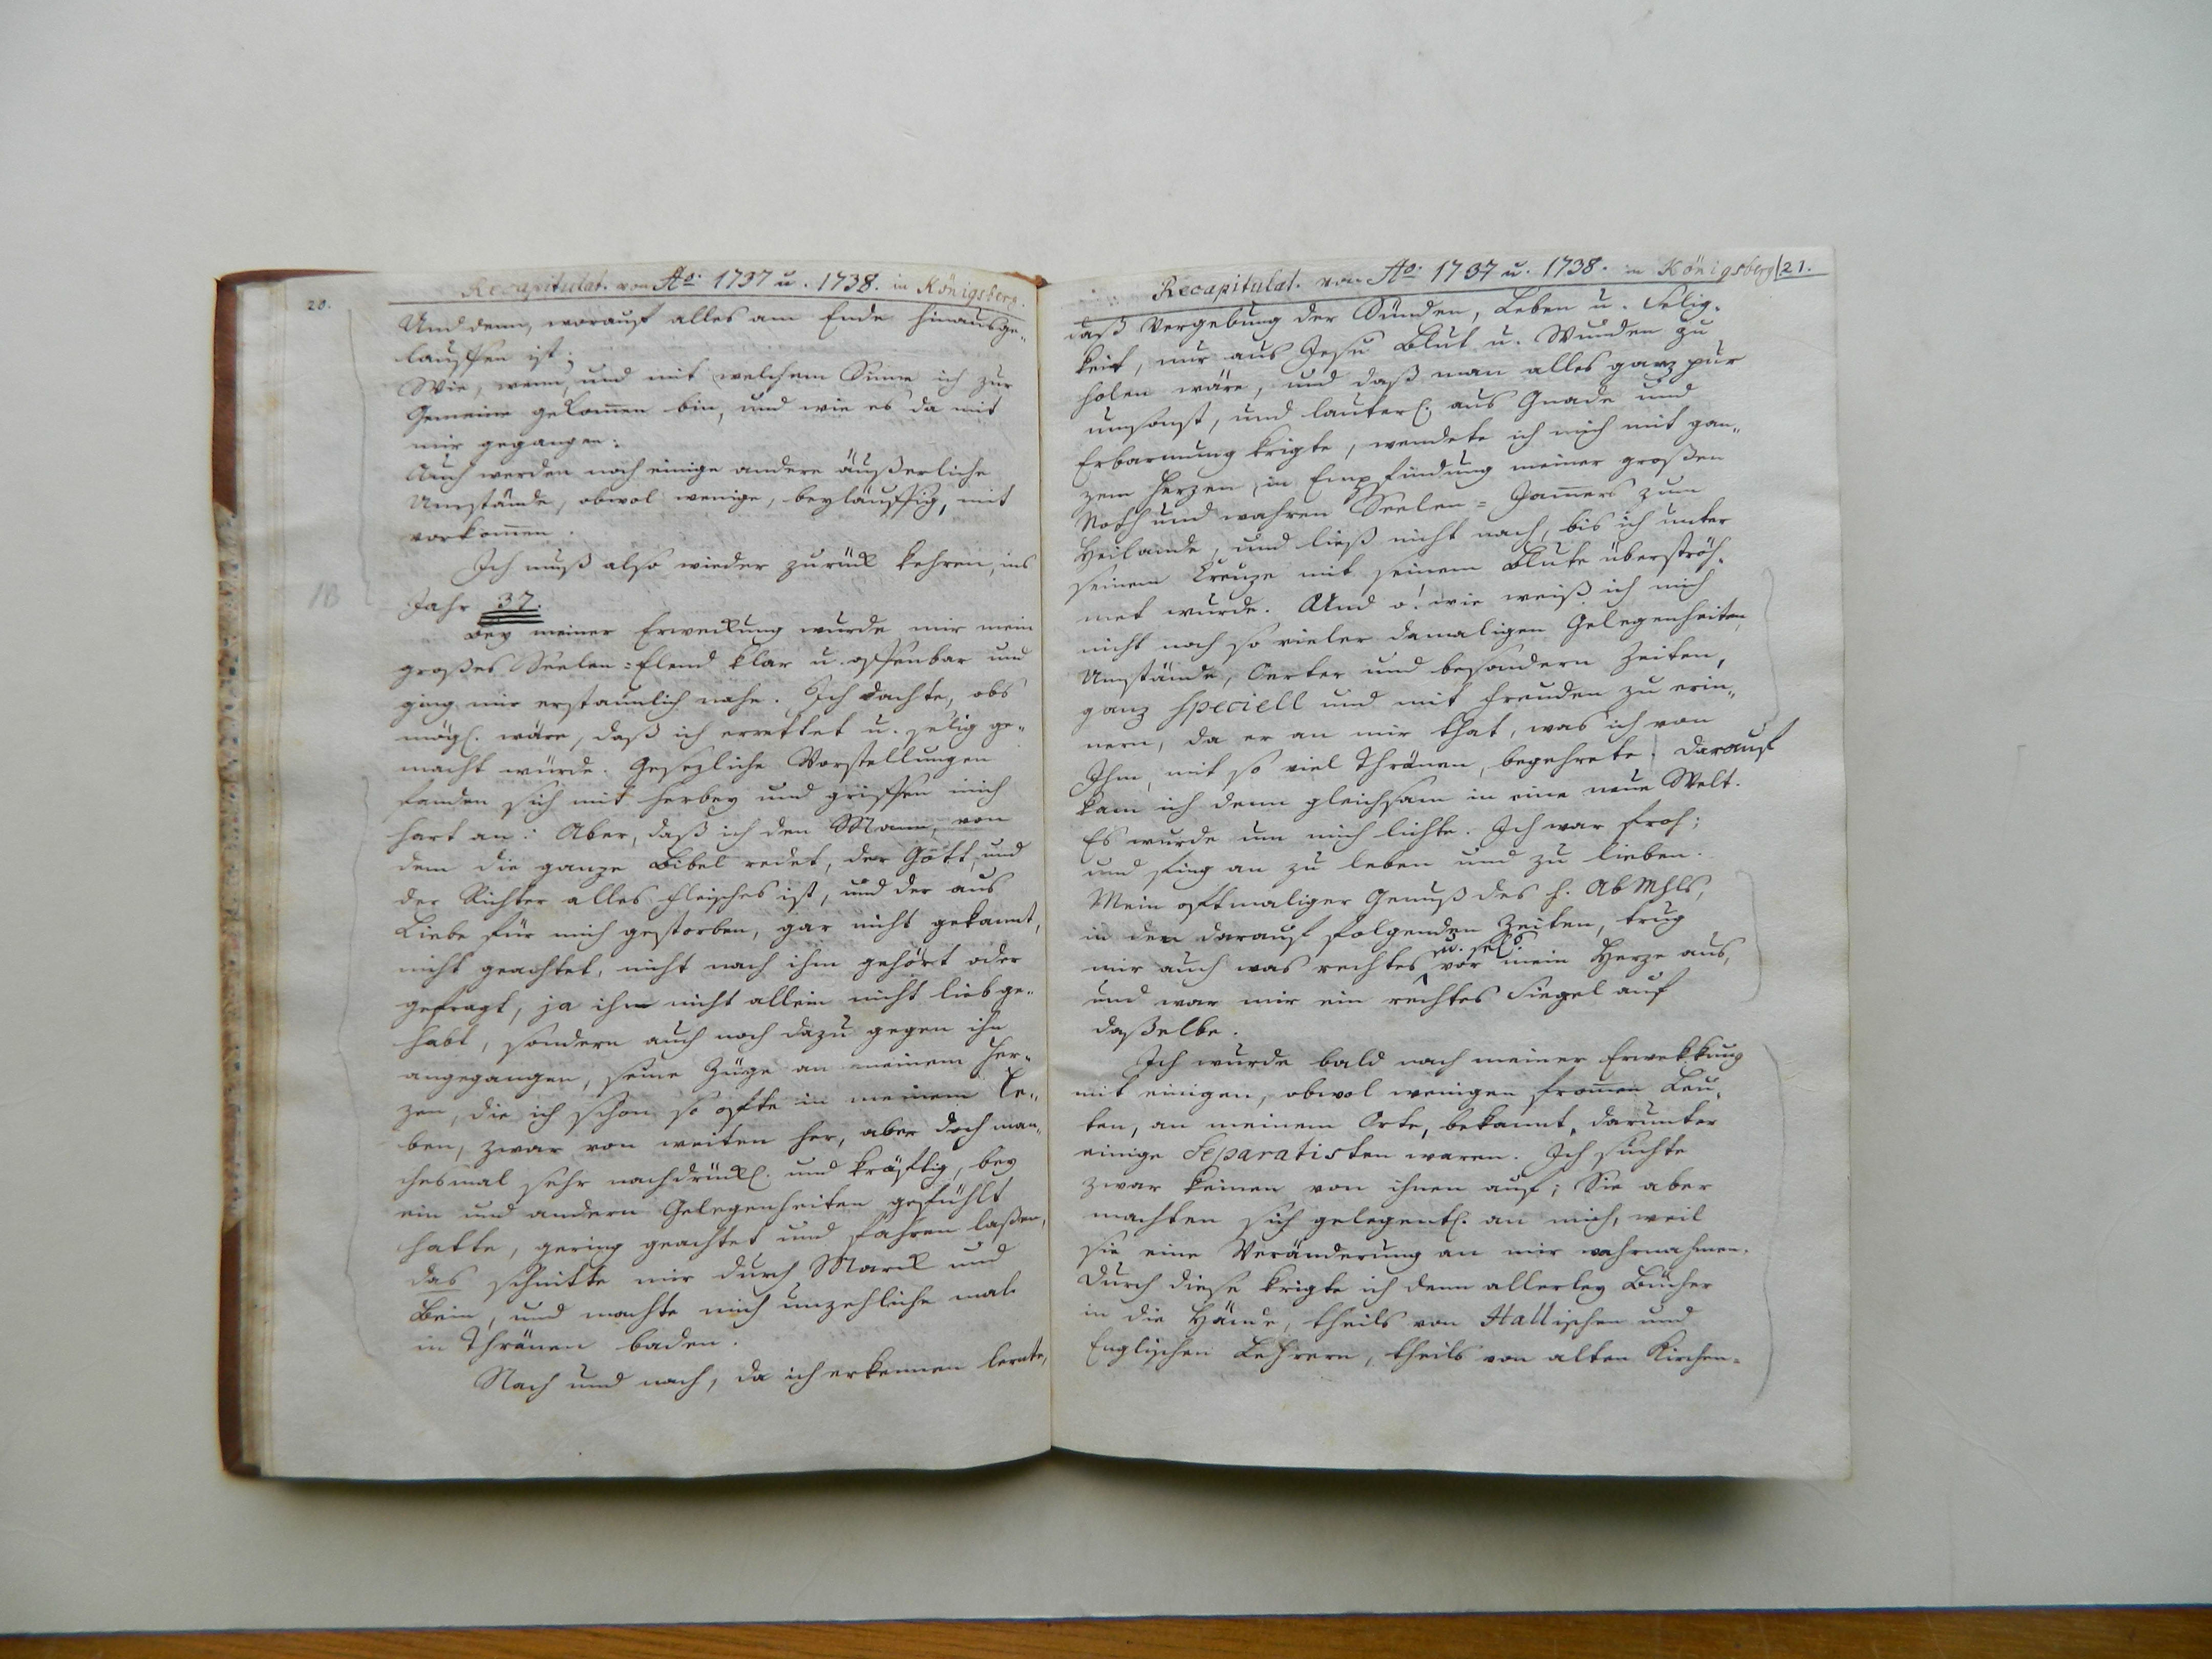 20.
Recapitulat. von Ao. 1737 u. 1738. in Königsberg.
Und denn, worauf alles am Ende hinausge„
lauffen ist;
Wie, wenn, und mit welchem Sinne ich zur
Gemeine gekom̄en bin, und wie es da mit
mir gegangen:
Auch werden noch einige andere äußerliche
Umstände, obwol wenige, beyläuffig, mit
vorkom̄en.
Ich muß also wieder zurück kehren, ins
Jahr 37.
Bey meiner Erweckung wurde mir mein
großes Seelen=Elend klar u. offenbar und
ging mir erstaunlich nahe. Ich dachte, obs
mögl. wäre, daß ich errettet u. selig ge„
macht würde. Gesezliche Vorstellungen
fanden sich mit herbey und griffen mich
hart an: Aber, daß ich den Mann, von
dem die ganze Bibel redet, der Gott, und
der Richter alles Fleisches ist, und der aus
Liebe für mich gestorben, gar nicht gekannt,
nicht geachtet, nicht nach ihm gehört oder
gefragt, ja ihn nicht allein nicht lieb ge„
habt, sondern auch noch dazu gegen ihn
angegangen, seine Züge an meinem Her„
zen, die ich schon so ofte in meinem Le„
ben, zwar von weiten her, aber doch man„
chesmal sehr nachdrückl. und kräftig, bey
ein und andern Gelegenheiten gefühlt
hatte, gering geachtet und fahren laßen,
das schnitte mir durch Marck und
Bein, und machte mich unzehliche mal
in Thränen baden.
Nach und nach, da ich erkennen lernte,
Recapitulat. von Ao. 1737 u. 1738. in Königsberg 21.
daß Vergebung der Sünden, Leben u. Selig„
keit, nur aus Jesu Blut u. Wunden zu
holen wäre, und daß man alles ganz pur
umsonst, und lauterl. aus Gnade und
Erbarmung krigte, wendete ich mich mit gan„
zem Herzen, in Empfindung meiner großen
Noth und wahren Seelen=Jam̄ers zum
Heilande, und ließ nicht nach, bis ich unter
seinem Creuze mit seinem Blute überströh„
met wurde. Und o! wie weiß ich mich
nicht noch so vieler damaligen Gelegenheiten,
Umstände, Oerter und besondern Zeiten,
ganz speciell und mit Freuden zu erin„
nern, da er an mir that, was ich von
Ihm, mit so viel Thränen, begehrete. Darauf
kam ich denn gleichsam in eine neue Welt.
Es wurde um mich lichte. Ich war froh;
und fing an zu leben und zu lieben.
Mein oftmaliger Genuß des h. AbMhls,
in den darauf folgenden Zeiten, trug
u. sel.
mir auch was rechtes vor mein Herze aus,
und war mir ein rechtes Siegel auf
daßelbe.
Ich wurde bald nach meiner Erwekkung
mit einigen, obwol wenigen from̄en Leu„
ten, an meinem Orte, bekannt, darunter
einige Separatisten waren. Ich suchte
zwar keinen von ihnen auf; Sie aber
machten sich gelegentl. an mich, weil
sie eine Veränderung an mir wahrnahmen.
Durch diese krigte ich denn allerley Bücher
in die Hände, theils von Hallischen und
Englischen Lehrern, theils von alten Kirchen„